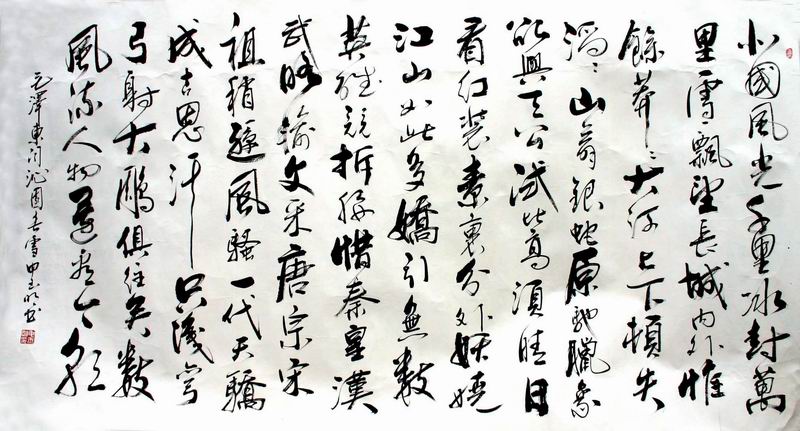 北國風光千里冰封萬
里雪飄望長城內外惟
餘莽〻大河上下頓失
滔〻山舞銀蛇原馳臘象
欲與天公試比高須晴日
看红裝素裹分外妖嬈
江山如此多嬌引無數
英雄競折腰惜秦皇漢
武略輸文采唐宗宋
祖稍遜風騷一代天驕
成吉思汗只識彎
弓射大鵰俱往矣數
風流人物還看今朝
毛澤東词沁園春雪